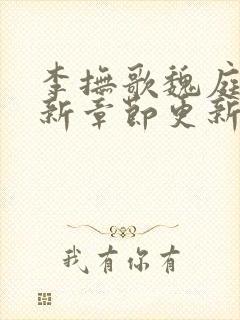 李抚歌魏庭
新章节更新
我有你有